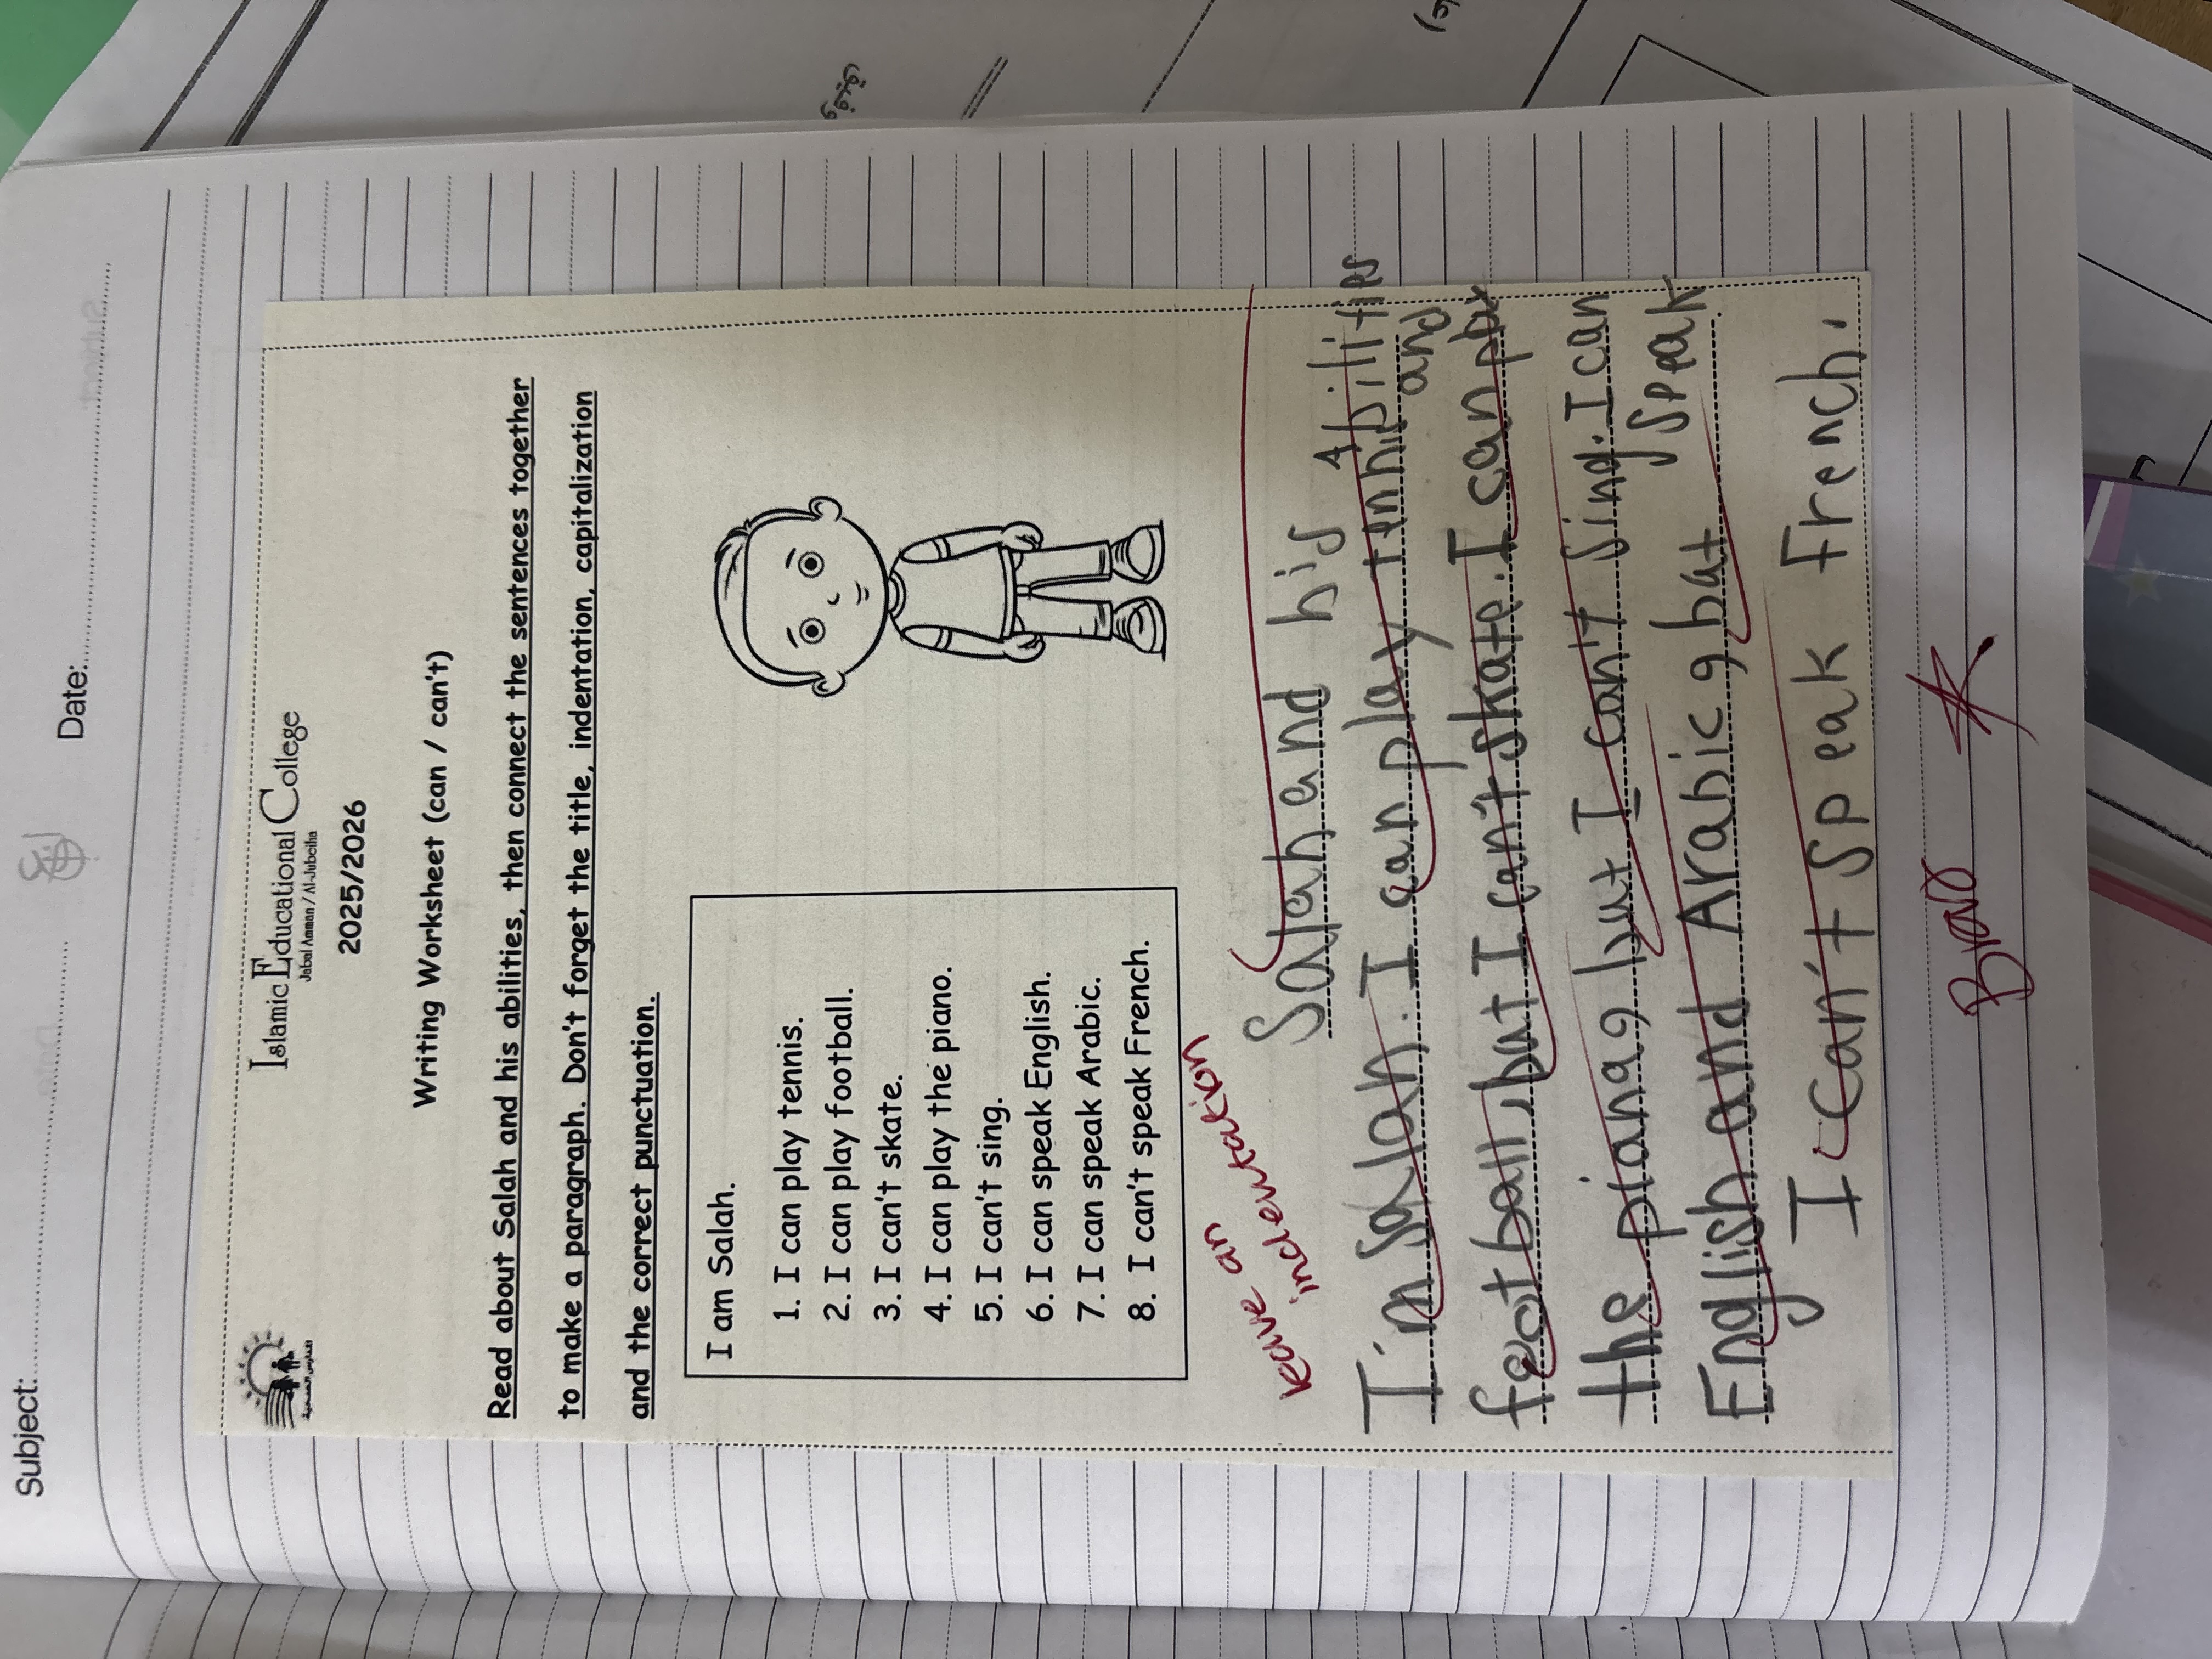 Subject:
Date:
Islamic Educational College
Jabal Amman / Al-Jubeiha
2025/2026
Writing Worksheet (can / can't)
Read about Salah and his abilities, then connect the sentences together
to make a paragraph. Don't forget the title, indentation, capitalization
and the correct punctuation.
I am Salah.
1. I can play tennis.
2. I can play football.
3. I can't skate.
4. I can play the piano.
5. I can't sing.
6. I can speak English.
7. I can speak Arabic.
8. I can't speak French.
leave an
indentation
Salah and his Abilities
I'm Salah. I can play tennis and
football, but I can't skate. I can play
the piano, but I can't sing. I can speak
English and Arabic, but
I can't speak French.